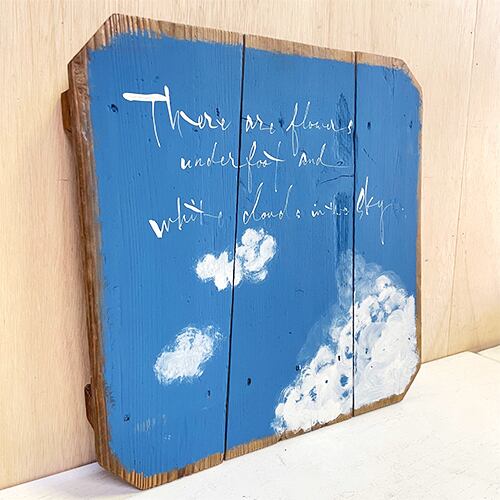 There are flowers
underfoot and
white clouds in the sky.